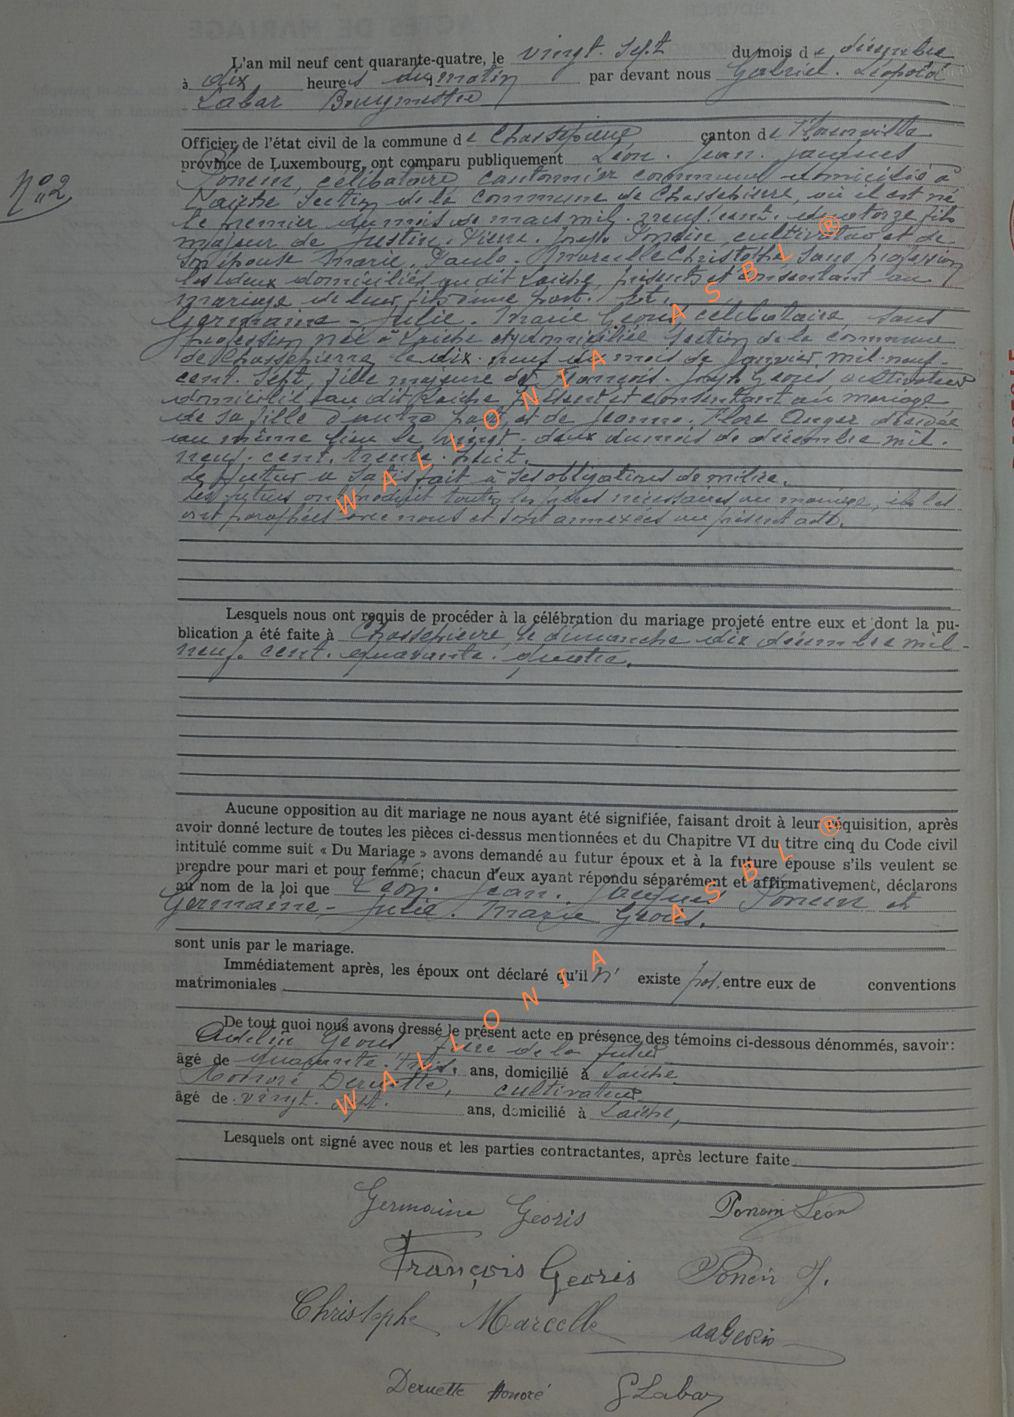 L'an mil neuf cent quarante-quatre, le vingt-sept du mois de décembre
à dix heures du matin par devant nous Gabriel. Léopold
Labar Bourgmestre
Officier de l'état civil de la commune de Chassepierre canton de Florenville
province de Luxembourg, ont comparu publiquement Léon. Jean. Jacques
N° 2
Ponein, célibataire cantonnier communal domicilié à
Laiche section de la commune de Chassepierre, où il est né
le premier du mois de mars mil-neuf-cent-quatorze fils
majeur de Justin. Pierre. Joseph Ponein, cultivateur et de
son épouse Marie. Paula. Marcelle Christophe, sans profession
les deux domiciliés au dit Laiche, présents et consentant au
mariage de leur fils d'une part. Et,
Germaine-Julie. Marie Georis célibataire, sans
profession née à Laiche et domiciliée section de la commune
de Chassepierre, le dix-neuf du mois de janvier mil-neuf-
cent. sept, fille majeure de François. Joseph Georis, cultivateur
domicilié au dit Laiche, présent et consentant au mariage
de sa fille d'autre part, et de Jeanne. Flore Anger décédée
au même lieu le vingt-deux du mois de décembre mil.
neuf. cent. trente. huit.
Le futur a satisfait à ses obligations de milice.
Les futurs ont produit toutes les pièces nécessaires au mariage, ils les
ont paraphées avec nous et sont annexées au présent acte.
Lesquels nous ont requis de procéder à la célébration du mariage projeté entre eux et dont la pu-
blication a été faite à Chassepierre, le dimanche dix décembre mil-
neuf. cent. quarante. quatre.
Aucune opposition au dit mariage ne nous ayant été signifiée, faisant droit à leur réquisition, après
avoir donné lecture de toutes les pièces ci-dessus mentionnées et du Chapitre VI du titre cinq du Code civil
intitulé comme suit « Du Mariage » avons demandé au futur époux et à la future épouse s'ils veulent se
prendre pour mari et pour femme; chacun d'eux ayant répondu séparément et affirmativement, déclarons
au nom de la loi que Léon. Jean. Jacques Ponein et
Germaine-Julie. Marie Georis.
sont unis par le mariage.
Immédiatement après, les époux ont déclaré qu'il n' existe pas entre eux de conventions
matrimoniales
De tout quoi nous avons dressé le présent acte en présence des témoins ci-dessous dénommés, savoir:
Georis frère de la future
âgé de quarante-trois, ans, domicilié à Laiche
Honoré Deruette, cultivateur
âgé de vingt-sept. ans, domicilié à Laiche,
Lesquels ont signé avec nous et les parties contractantes, après lecture faite
Germaine Georis Ponein Léon
François Georis Ponein J.
Christophe Marcelle aaGeoris
Deruette Honoré GLabar
WALLONIA ASBL ®
WALLONIA ASBL ®